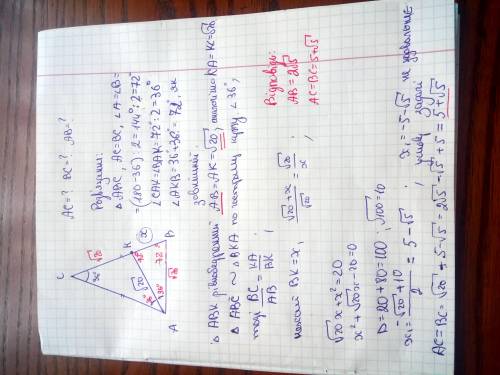 AC=? BC=? AB=?
Розв'язання:
△ABC, AC=BC, ∠A=∠B=
=(180-36):2=144°:2=72°
∠CAK=∠BAK=72°:2=36°
∠AKB=36°+36°=72°, як
зовнішній.
△ABK рівнобедрений AB=AK=√20; KA=KC=√20
△ABC ~ △BKA по гострому куту ∠36°;
тоді BC/AB = KA/BK ;
нехай BK=x,
(√20+x)/√20 = √20/x ;
√20x+x²=20
x²+√20x-20=0
D=20+80=100; √100=10
x₁=(-√20+10)/2=5-√5 ; x₂=-5-√5 не задовольняє
умову задачі
AC=BC=√20+5-√5=2√5-√5+5=5+√5
Відповідь:
AB=2√5
AC=BC=5+√5
C
36°
√20
K
x
72°
√20
36°
36°
72°
A
√20
B